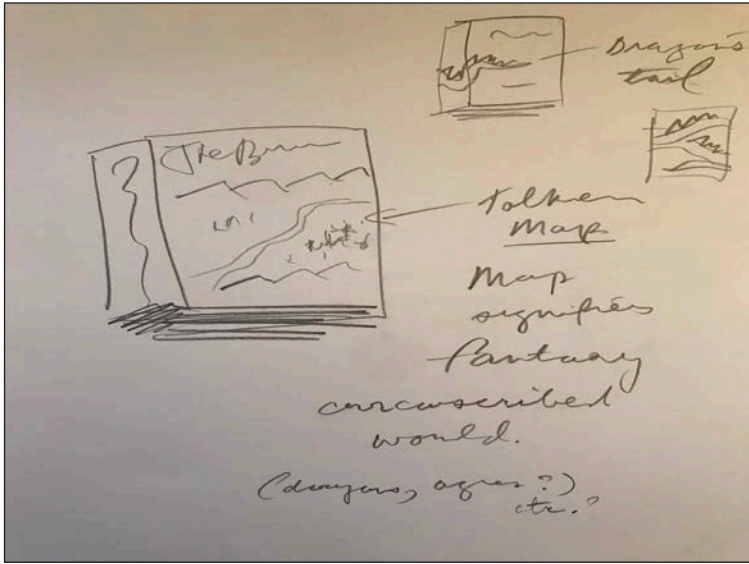 Dragon's
tail
The
Tolkien
Map
Map
signifies
fantasy
circumscribed
would.
(dragons, ogres?)
etc.?